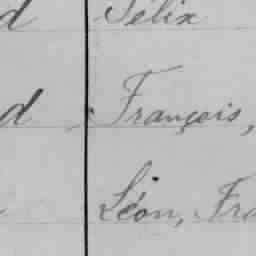 d Félix
d François,
Léon, Fra